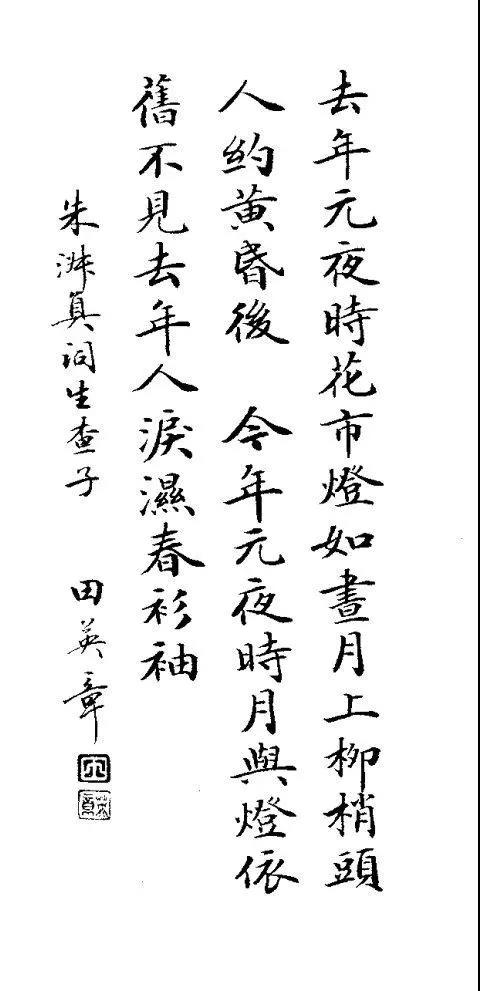 去年元夜時花市燈如晝月上柳梢頭
人約黃昏後 今年元夜時月與燈依
舊不見去年人淚濕春衫袖
朱淑真詞生查子
田英章